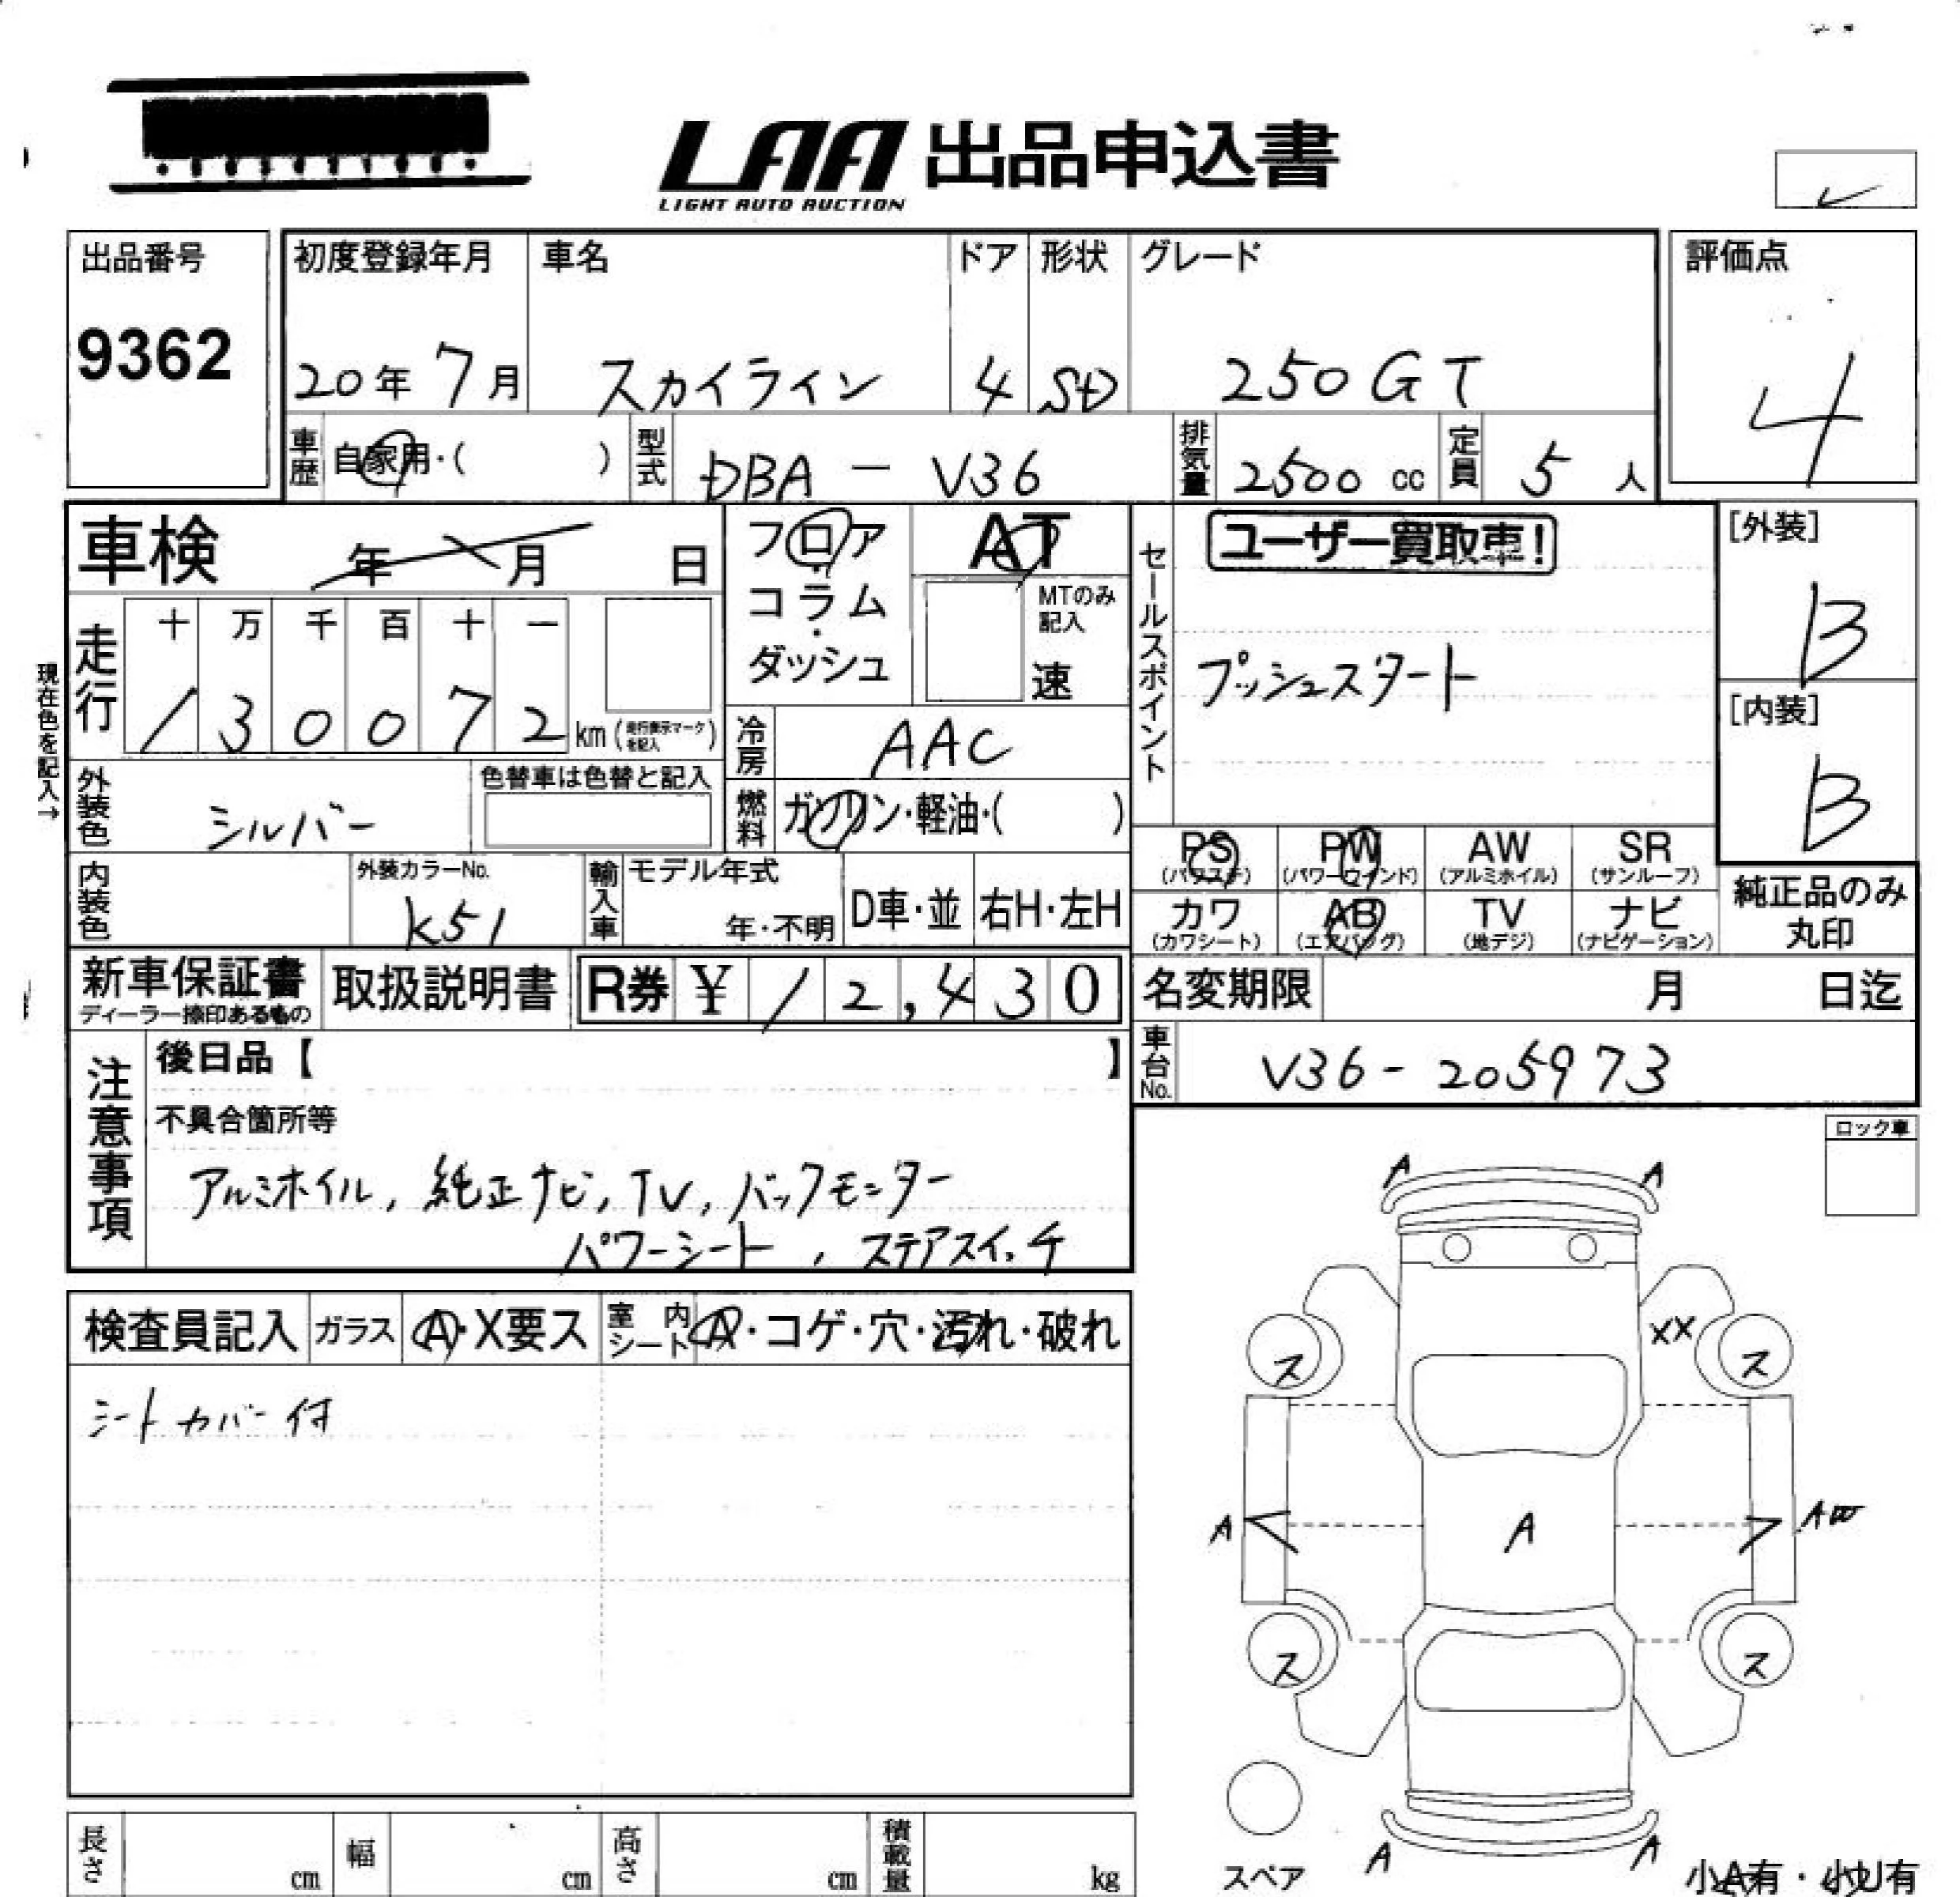 LAA 出品申込書
LIGHT AUTO AUCTION
出品番号
9362
初度登録年月 車名 ドア 形状 グレード
20年 7月 スカイライン 4 SD 250GT
評価点
4
車歴 自家用・( ) 型式 DBA - V36 排気量 2500 cc 定員 5 人
車検 年 月 日
フロア・コラム・ダッシュ
AT
MTのみ記入
速
セールスポイント
ユーザー買取車!
プッシュスタート
[外装]
B
[内装]
B
現在色を記入→
走行 十 万 千 百 十 一
1 3 0 0 7 2 km (走行表示マークを記入)
冷房 AAC
外装色 シルバー
色替車は色替と記入
燃料 ガソリン・軽油・( )
内装色
外装カラーNo.
K51
輸入車 モデル年式
年・不明
D車・並 右H・左H
PS PW AW SR
(パワステ) (パワーウインド) (アルミホイル) (サンルーフ)
カワ AB TV ナビ
(カワシート) (エアバッグ) (地デジ) (ナビゲーション)
純正品のみ
丸印
新車保証書
ディーラー捺印あるもの
取扱説明書 R券 ¥ 12,430
名変期限 月 日迄
車台No. V36-205973
注意事項
後日品【 】
不具合箇所等
アルミホイル, 純正ナビ, TV, バックモニター
パワーシート, ステアスイッチ
ロック車
検査員記入 ガラス A・X要ス 室内シート A・コゲ・穴・汚れ・破れ
シートカバー付
A A
XX
ス ス
A A
ス ス
A A
スペア
小A有・小U有
長さ cm 幅 cm 高さ cm 積載量 kg